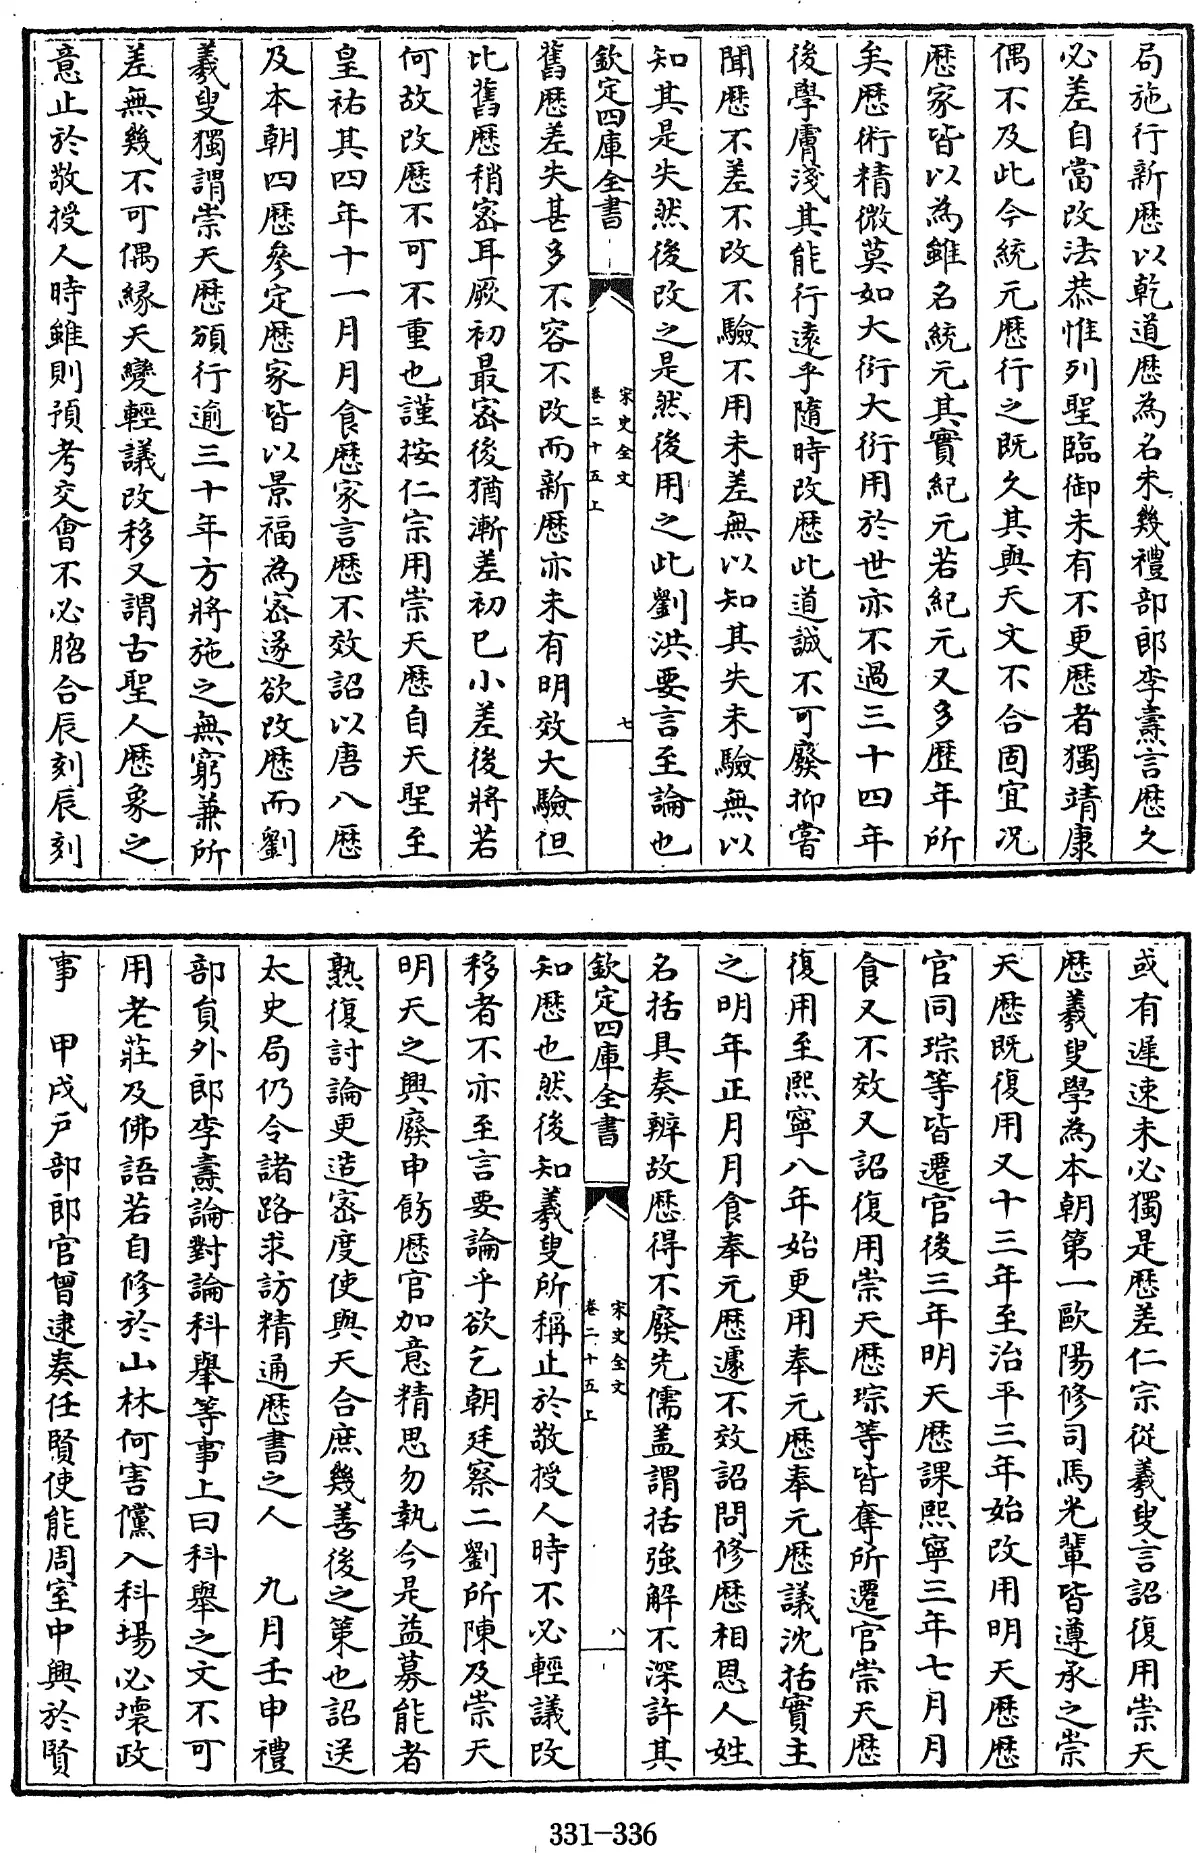 局施行新厯以乾道厯為名未幾禮部郎李燾言厯久
必差自當改法恭惟列聖臨御未有不更厯者獨靖康
偶不及此今統元厯行之既久其與天文不合固宜况
厯家皆以為雖名統元其實紀元若紀元又多歴年所
矣厯術精微莫如大衍大衍用於世亦不過三十四年
後學膚淺其能行遠乎隨時改厯此道誠不可廢抑嘗
聞厯不差不改不驗不用未差無以知其失未驗無以
知其是失然後改之是然後用之此劉洪要言至論也
欽定四庫全書
宋史全文
卷二十五上
七
舊厯差失甚多不容不改而新厯亦未有明效大驗但
比舊厯稍宻耳厥初最宻後猶漸差初已小差後將若
何故改厯不可不重也謹按仁宗用崇天厯自天聖至
皇祐其四年十一月月食厯家言厯不效詔以唐八厯
及本朝四厯參定厯家皆以景福為宻遂欲改厯而劉
羲叟獨謂崇天厯頒行逾三十年方將施之無窮兼所
差無幾不可偶縁天變輕議改移又謂古聖人厯象之
意止於敬授人時雖則預考交會不必脗合辰刻辰刻
或有遲速未必獨是厯差仁宗從羲叟言詔復用崇天
厯羲叟學為本朝第一歐陽修司馬光輩皆遵承之崇
天厯既復用又十三年至治平三年始改用明天厯厯
官同琮等皆遷官後三年明天厯課熙寧三年七月月
食又不效又詔復用崇天厯琮等皆奪所遷官崇天厯
復用至熙寧八年始更用奉元厯奉元厯議沈括實主
之明年正月月食奉元厯遽不效詔問修厯相恩人姓
名括具奏辨故厯得不廢先儒盖謂括強解不深許其
欽定四庫全書
宋史全文
卷二十五上
八
知厯也然後知羲叟所稱止於敬授人時不必輕議改
移者不亦至言要論乎欲乞朝廷察二劉所陳及崇天
明天之興廢申飭厯官加意精思勿執今是益募能者
熟復討論更造宻度使與天合庶幾善後之策也詔送
太史局仍令諸路求訪精通厯書之人　九月壬申禮
部員外郎李燾論對論科舉等事上曰科舉之文不可
用老莊及佛語若自修於山林何害儻入科場必壞政
事　甲戌戸部郎官曾逮奏任賢使能周室中興於賢
331-336